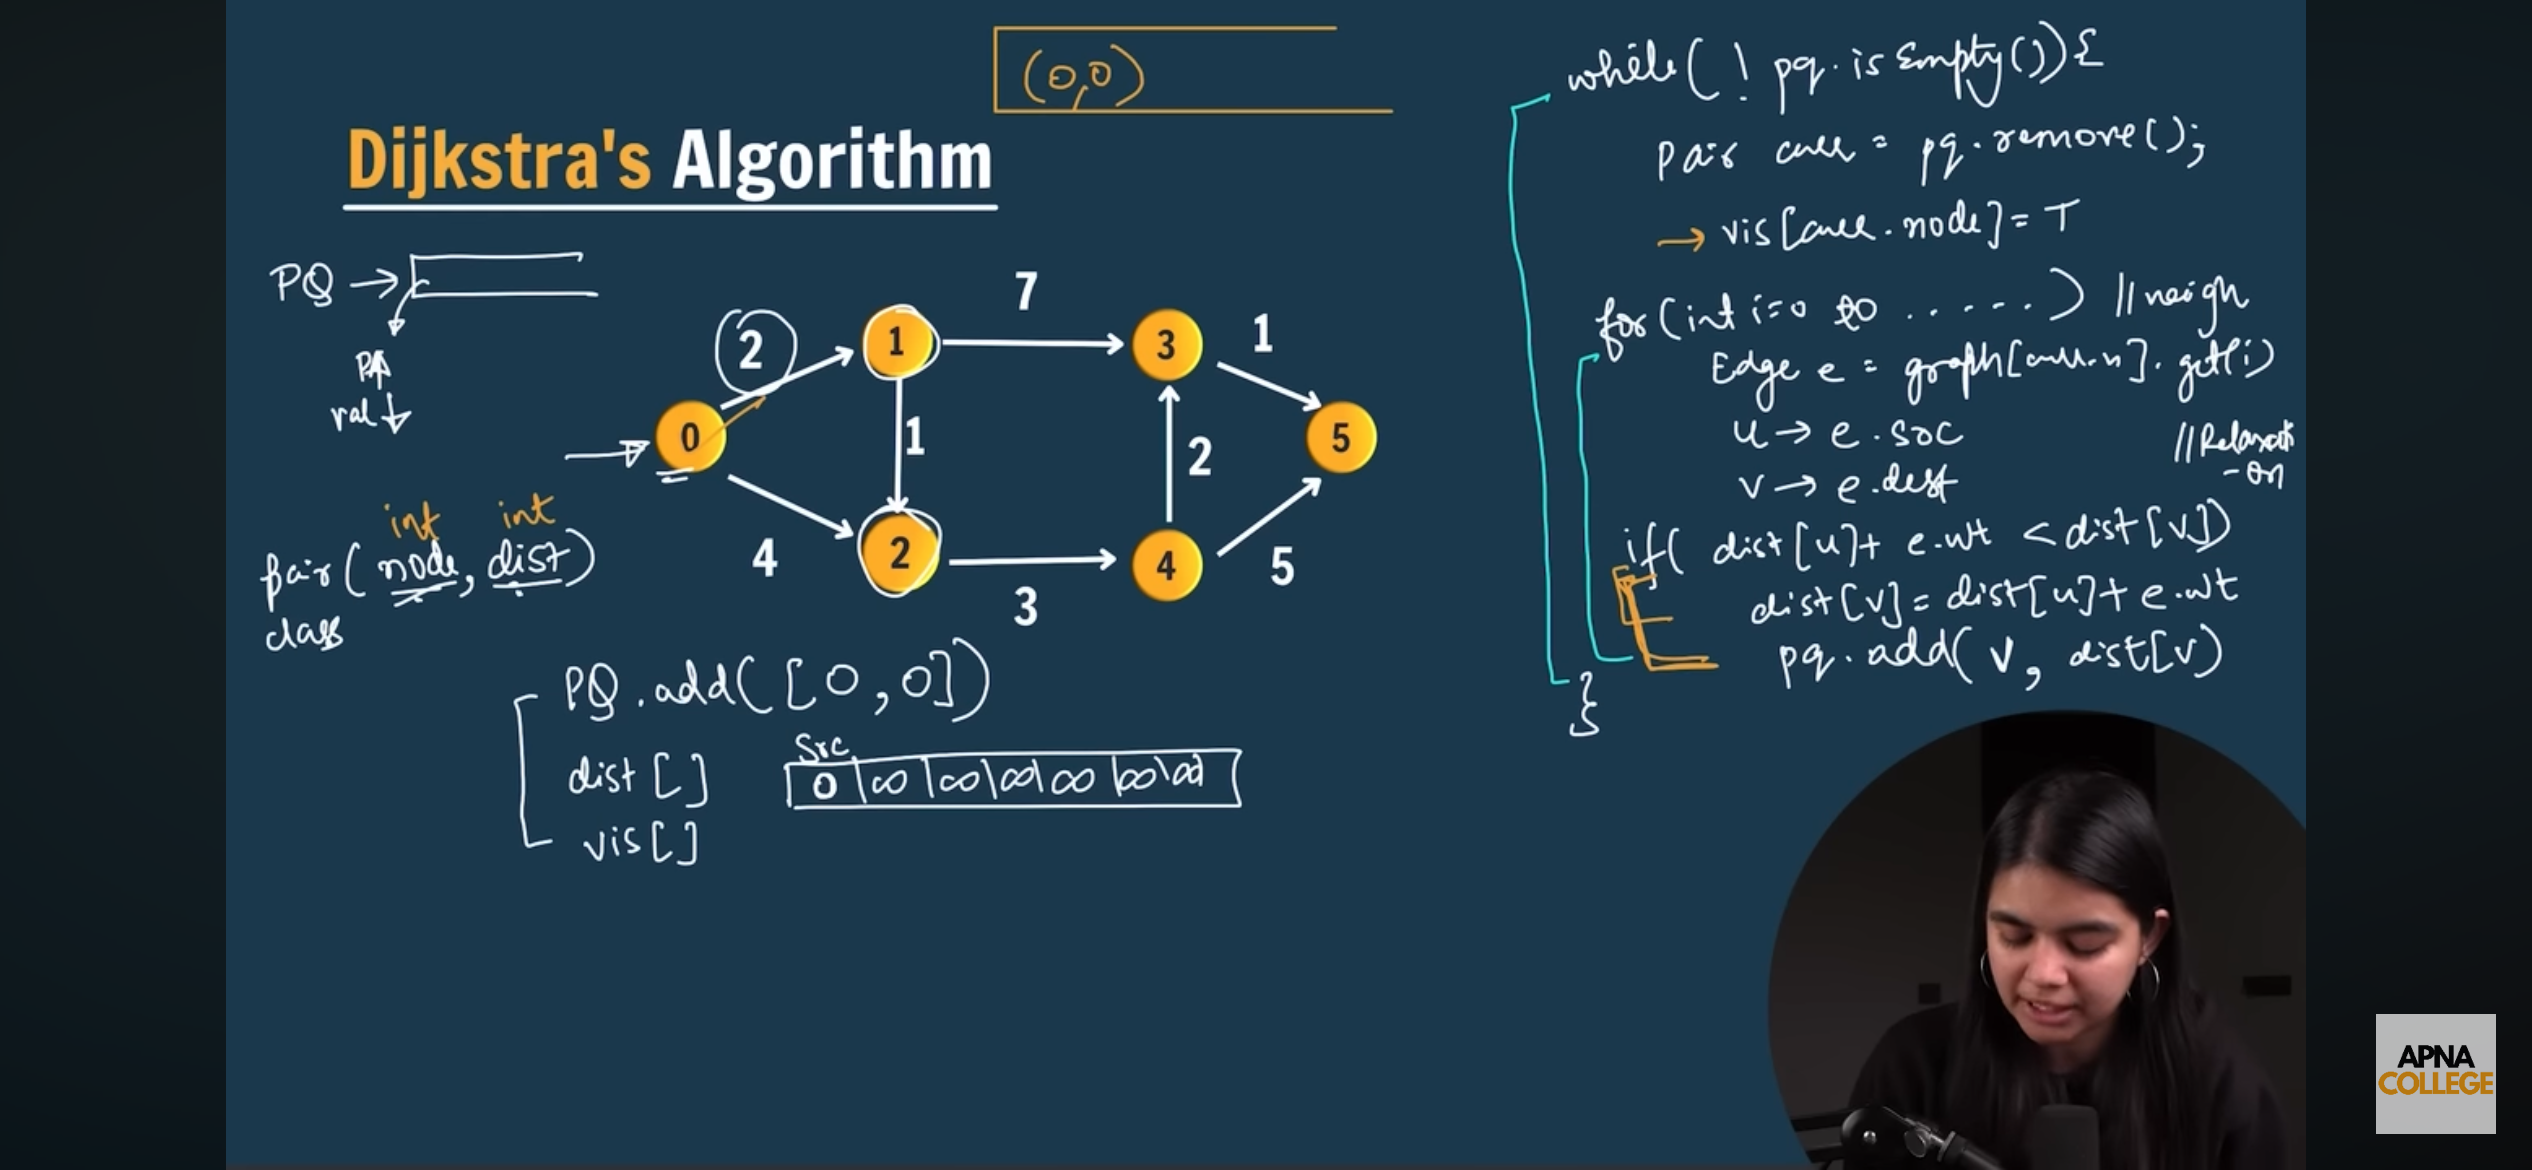 (0,0)
Dijkstra's Algorithm
PQ →
val ↓
7
2
1
3
1
0
1
2
5
4
2
4
5
3
int int
pair (node, dist)
class
PQ.add([0,0])
dist []
src
0 ∞ ∞ ∞ ∞ ∞ ∞
vis[]
while( ! pq.isEmpty()){
Pair curr = pq.remove();
→ vis[curr.node] = T
for(int i=0 to ......) // neigh
Edge e = graph[curr.n].get(i)
u → e.src
v → e.dest
// Relaxati
-on
if( dist[u]+ e.wt < dist[v])
dist[v] = dist[u]+ e.wt
pq.add( v, dist[v)
}
APNA
COLLEGE